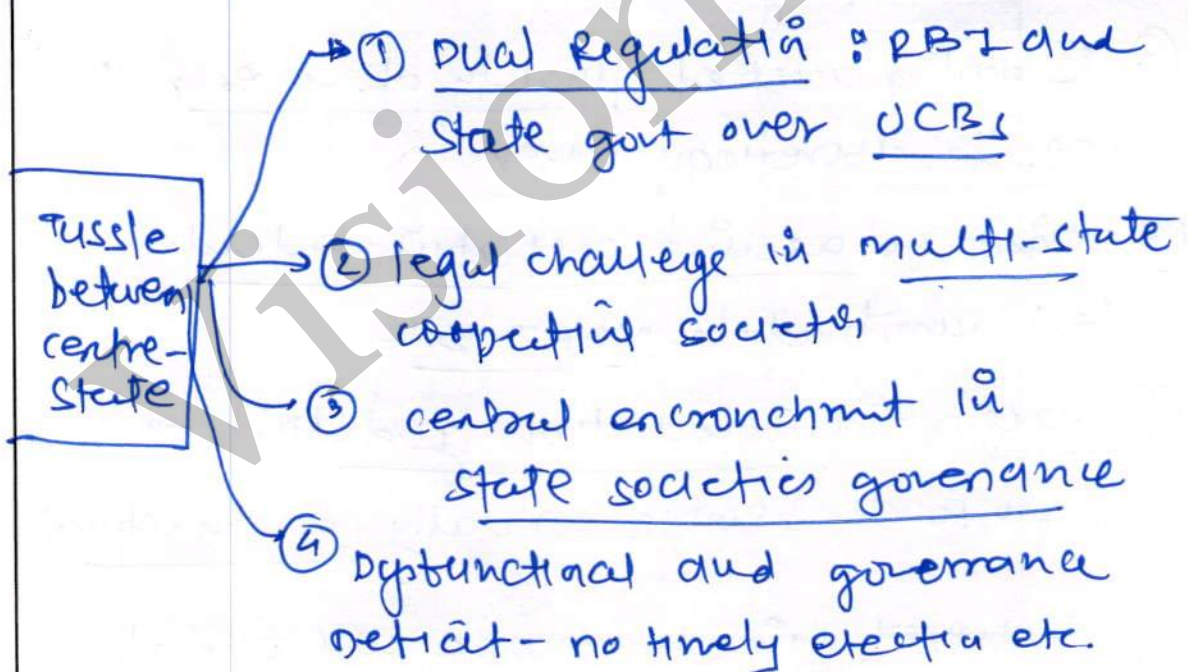 Tussle
between
centre-
State
① Dual Regulation : RBI and
State govt over UCBs
② legal challenge in multi-state
cooperative societies
③ central encroachment in
state societies governance
④ Dysfunctional and governance
Deficit - no timely election etc.
Vision